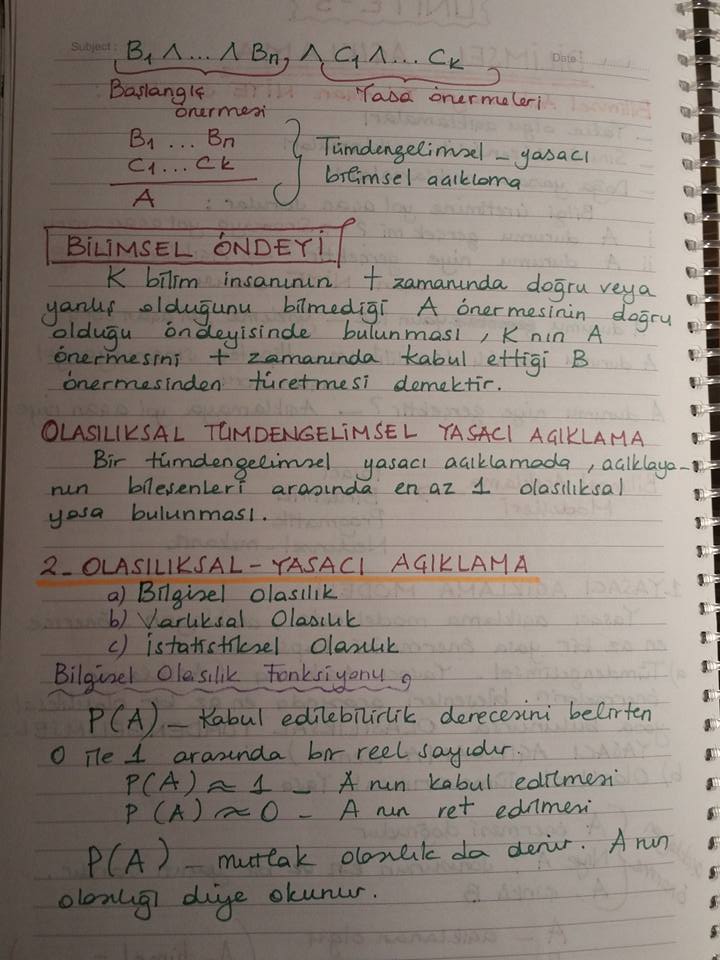 Subject: B₁ Λ... Λ Bn, Λ C₁ Λ... Ck Date
Başlangıç önermesi Yasa önermeleri
B₁ ... Bn
C₁ ... Ck
A
Tümdengelimsel - yasacı
bilimsel açıklama
BİLİMSEL ÖNDEYİ
K bilim insanının t zamanında doğru veya
yanlış olduğunu bilmediği A önermesinin doğru
olduğu öndeyisinde bulunması, K nın A
önermesini t zamanında kabul ettiği B
önermesinden türetmesi demektir.
OLASILIKSAL TÜMDENGELİMSEL YASACI AÇIKLAMA
Bir tümdengelimsel yasacı açıklamada, açıklaya-
nın bileşenleri arasında en az 1 olasılıksal
yasa bulunması.
2- OLASILIKSAL - YASACI AÇIKLAMA
a) Bilgisel olasılık
b) Varlıksal Olasılık
c) İstatistiksel Olasılık
Bilgisel Olasılık Fonksiyonu,
P(A) - Kabul edilebilirlik derecesini belirten
0 ile 1 arasında bir reel sayıdır.
P(A) ≈ 1 - A nın kabul edilmesi
P(A) ≈ 0 - A nın ret edilmesi
P(A) - mutlak olasılık da denir. A nın
olasılığı diye okunur.